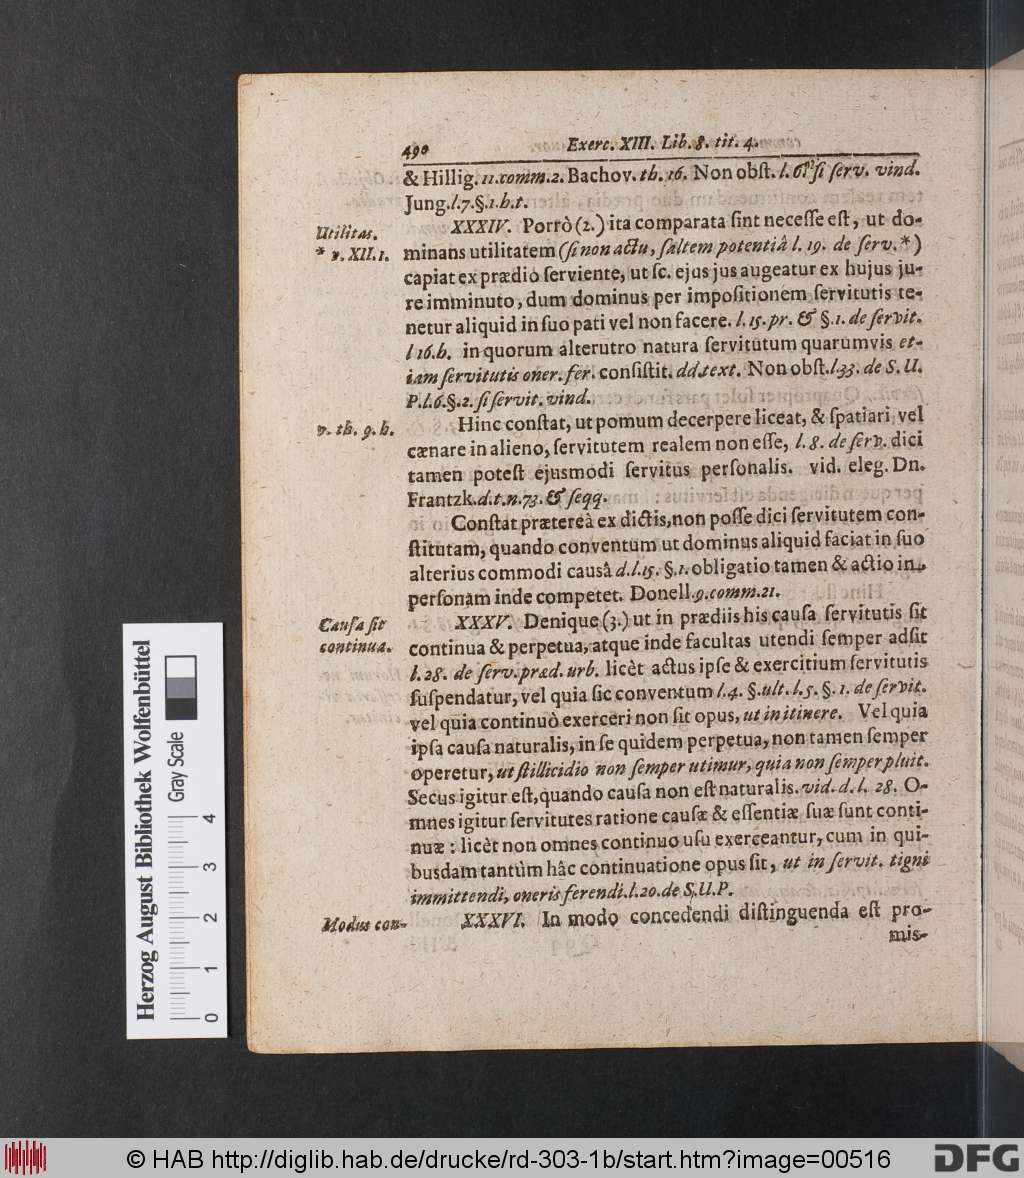 490 Exerc. XIII. Lib. 8. tit. 4.
& Hillig. 11. comm. 2. Bachov. th. 16. Non obst. l. 6. si serv. vind.
Jung. l. 7. §. 1. h. t.
Utilitas.
* v. XII. 1.
XXXIV. Porrò (2.) ita comparata sint necesse est, ut do-
minans utilitatem (si non actu, saltem potentiâ l. 19. de serv. *)
capiat ex prædio serviente, ut sc. ejus jus augeatur ex hujus ju-
re imminuto, dum dominus per impositionem servitutis te-
netur aliquid in suo pati vel non facere. l. 15. pr. & §. 1. de servit.
l 16. h. in quorum alterutro natura servitutum quarumvis et-
iam servitutis oner. fer. consistit. dd. text. Non obst. l. 33. de S. U.
P. l. 6. §. 2. si servit. vind.
v. th. 9. h.
Hinc constat, ut pomum decerpere liceat, & spatiari vel
cænare in alieno, servitutem realem non esse, l. 8. de serv. dici
tamen potest ejusmodi servitus personalis. vid. eleg. Dn.
Frantzk. d. t. n. 73. & seqq.
Constat prætereà ex dictis, non posse dici servitutem con-
stitutam, quando conventum ut dominus aliquid faciat in suo
alterius commodi causâ d. l. 15. §. 1. obligatio tamen & actio in
personam inde competet. Donell. 9. comm. 21.
Causa sit
continua.
XXXV. Denique (3.) ut in prædiis his causa servitutis sit
continua & perpetua, atque inde facultas utendi semper adsit
l. 28. de serv. præd. urb. licèt actus ipse & exercitium servitutis
suspendatur, vel quia sic conventum l. 4. §. ult. l. 5. §. 1. de servit.
vel quia continuò exerceri non sit opus, ut in itinere. Vel quia
ipsa causa naturalis, in se quidem perpetua, non tamen semper
operetur, ut stillicidio non semper utimur, quia non semper pluit.
Secus igitur est, quando causa non est naturalis. vid. d. l. 28. O-
mnes igitur servitutes ratione causæ & essentiæ suæ sunt conti-
nuæ : licèt non omnes continuo usu exerceantur, cum in qui-
busdam tantùm hâc continuatione opus sit, ut in servit. tigni
immittendi, oneris ferendi. l. 20. de S. U. P.
Modus con-
XXXVI. In modo concedendi distinguenda est pro-
mis-
Herzog August Bibliothek Wolfenbüttel
Gray Scale
0 1 2 3 4
© HAB http://diglib.hab.de/drucke/rd-303-1b/start.htm?image=00516
DFG